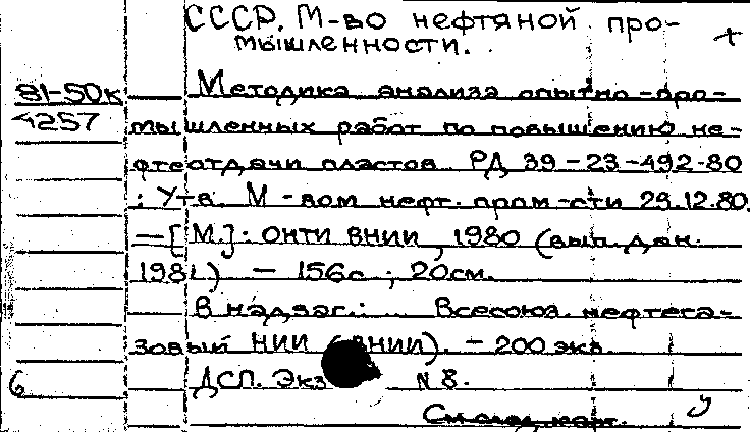 СССР. М-во нефтяной про-
мышленности. +
81-50к Методика анализа опытно-про-
4257 мышленных работ по повышению не-
фтеотдачи пластов РД 39-23-492-80
: Утв. М-вом нефт. пром-сти 29.12.80.
—[М.]: ОНТИ ВНИИ, 1980 (вып. дан.
1981) — 156с ; 20см.
В надзаг.: Всесоюз. нефтега-
зовый НИИ (ВНИИ). — 200 экз.
6 ДСП. Экз N 8.
См. след. карт. у